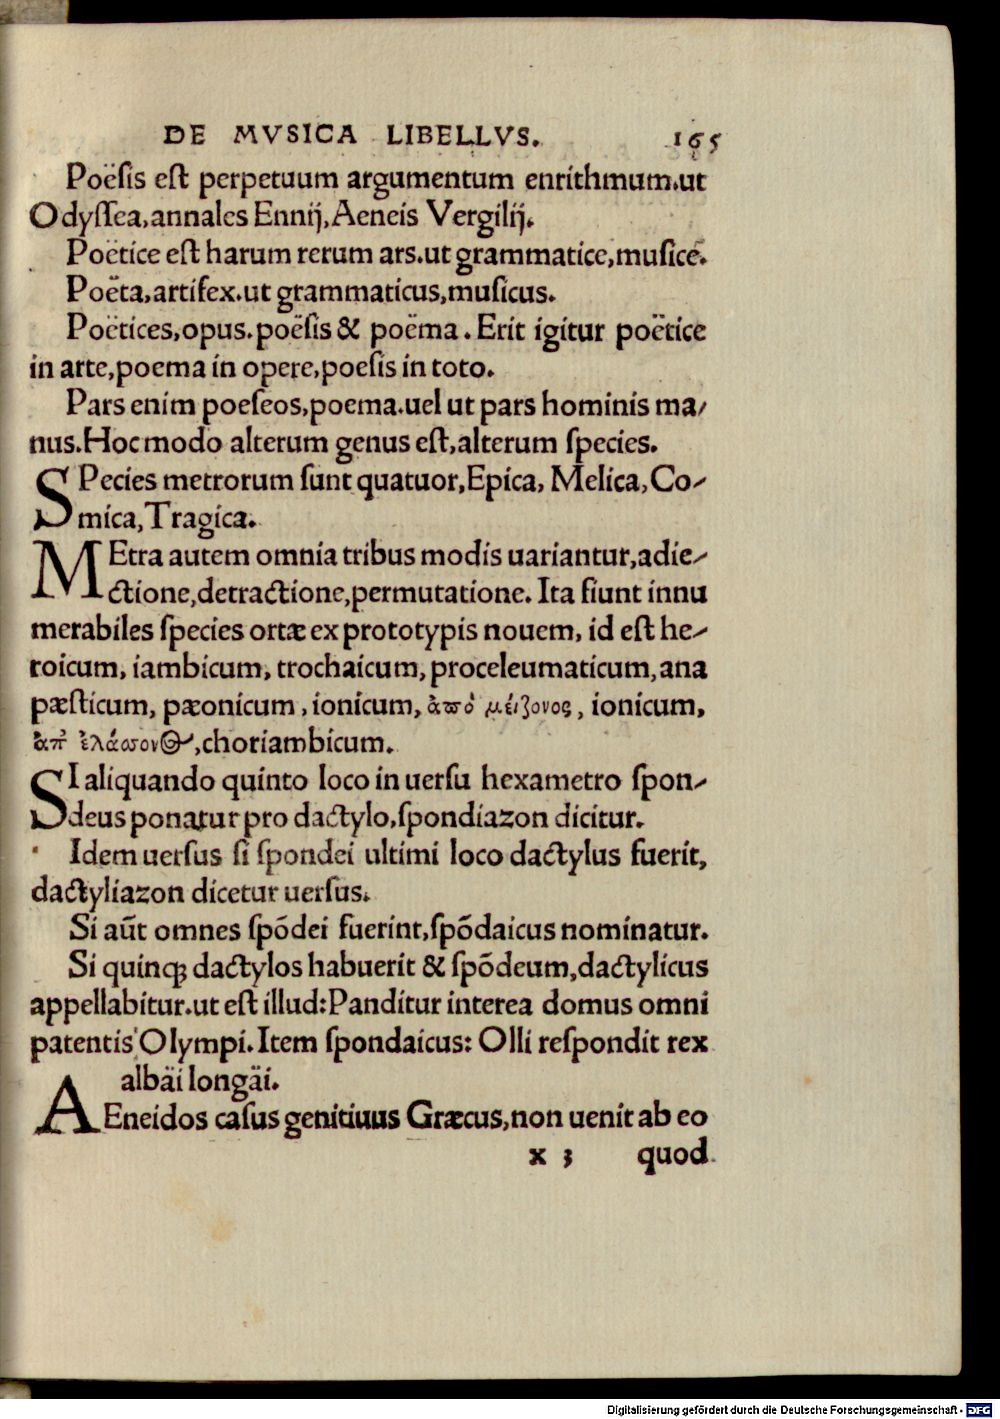 DE MVSICA LIBELLVS. 165
Poësis est perpetuum argumentum enrithmum.ut
Odyssea,annales Ennij,Aeneis Vergilij.
Poëtice est harum rerum ars.ut grammatice,musice.
Poëta,artifex.ut grammaticus,musicus.
Poëtices,opus.poësis & poëma. Erit igitur poëtice
in arte,poema in opere,poesis in toto.
Pars enim poeseos,poema.uel ut pars hominis ma/
nus.Hoc modo alterum genus est,alterum species.
SPecies metrorum sunt quatuor,Epica, Melica,Co/
mica,Tragica.
MEtra autem omnia tribus modis uariantur,adie/
ctione,detractione,permutatione. Ita fiunt innu
merabiles species ortæ ex prototypis nouem, id est he/
roicum, iambicum, trochaicum, proceleumaticum, ana
pæsticum, pæonicum, ionicum, ἀπὸ μείζονος, ionicum,
ἀπ' ἐλάσσονος,choriambicum.
SI aliquando quinto loco in uersu hexametro spon/
deus ponatur pro dactylo,spondiazon dicitur.
Idem uersus si spondei ultimi loco dactylus fuerit,
dactyliazon dicetur uersus.
Si aūt omnes spōdei fuerint,spōdaicus nominatur.
Si quinqꝫ dactylos habuerit & spōdeum,dactylicus
appellabitur.ut est illud:Panditur interea domus omni
patentis Olympi.Item spondaicus: Olli respondit rex
albäi longäi.
AEneidos casus genitiuus Græcus,non uenit ab eo
x 3 quod
Digitalisierung gefördert durch die Deutsche Forschungsgemeinschaft - DFG